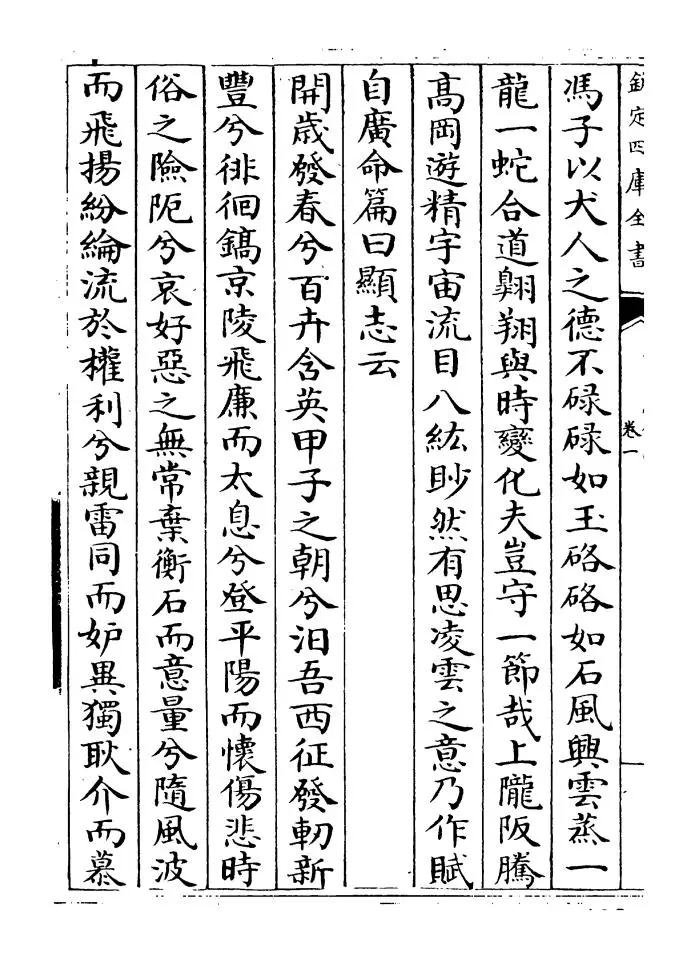 欽定四庫全書
卷一
馮子以犬人之德不碌碌如玉硌硌如石風興雲蒸一
龍一蛇合道翺翔與時變化夫豈守一節哉上隴阪騰
高岡遊精宇宙流目八紘眇然有思凌雲之意乃作賦
自廣命篇曰顯志云
開歳發春兮百卉含英甲子之朝兮汨吾西征發軔新
豐兮徘徊鎬京陵飛廉而太息兮登平陽而懷傷悲時
俗之險阨兮哀好惡之無常棄衡石而意量兮隨風波
而飛揚紛綸流於權利兮親雷同而妒異獨耿介而慕